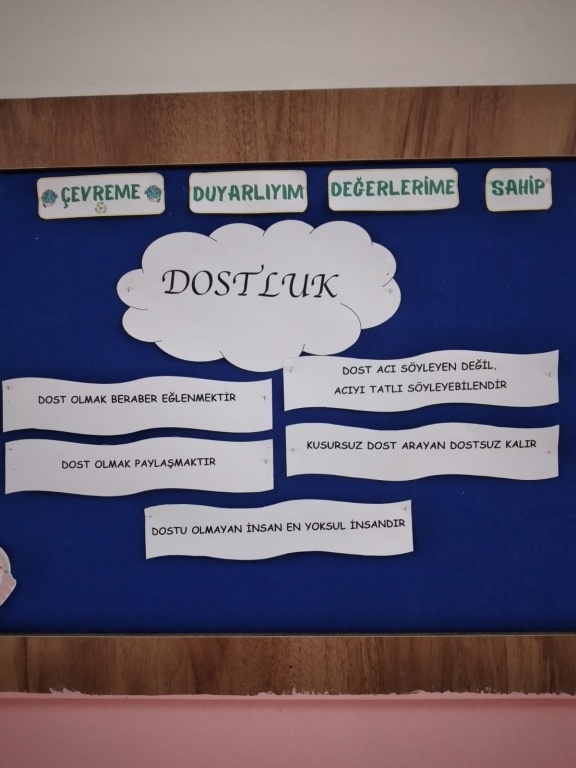 ÇEVREME DUYARLIYIM DEĞERLERİME SAHİP
DOSTLUK
DOST OLMAK BERABER EĞLENMEKTİR
DOST ACI SÖYLEYEN DEĞİL,
ACIYI TATLI SÖYLEYEBİLENDİR
DOST OLMAK PAYLAŞMAKTIR
KUSURSUZ DOST ARAYAN DOSTSUZ KALIR
DOSTU OLMAYAN İNSAN EN YOKSUL İNSANDIR